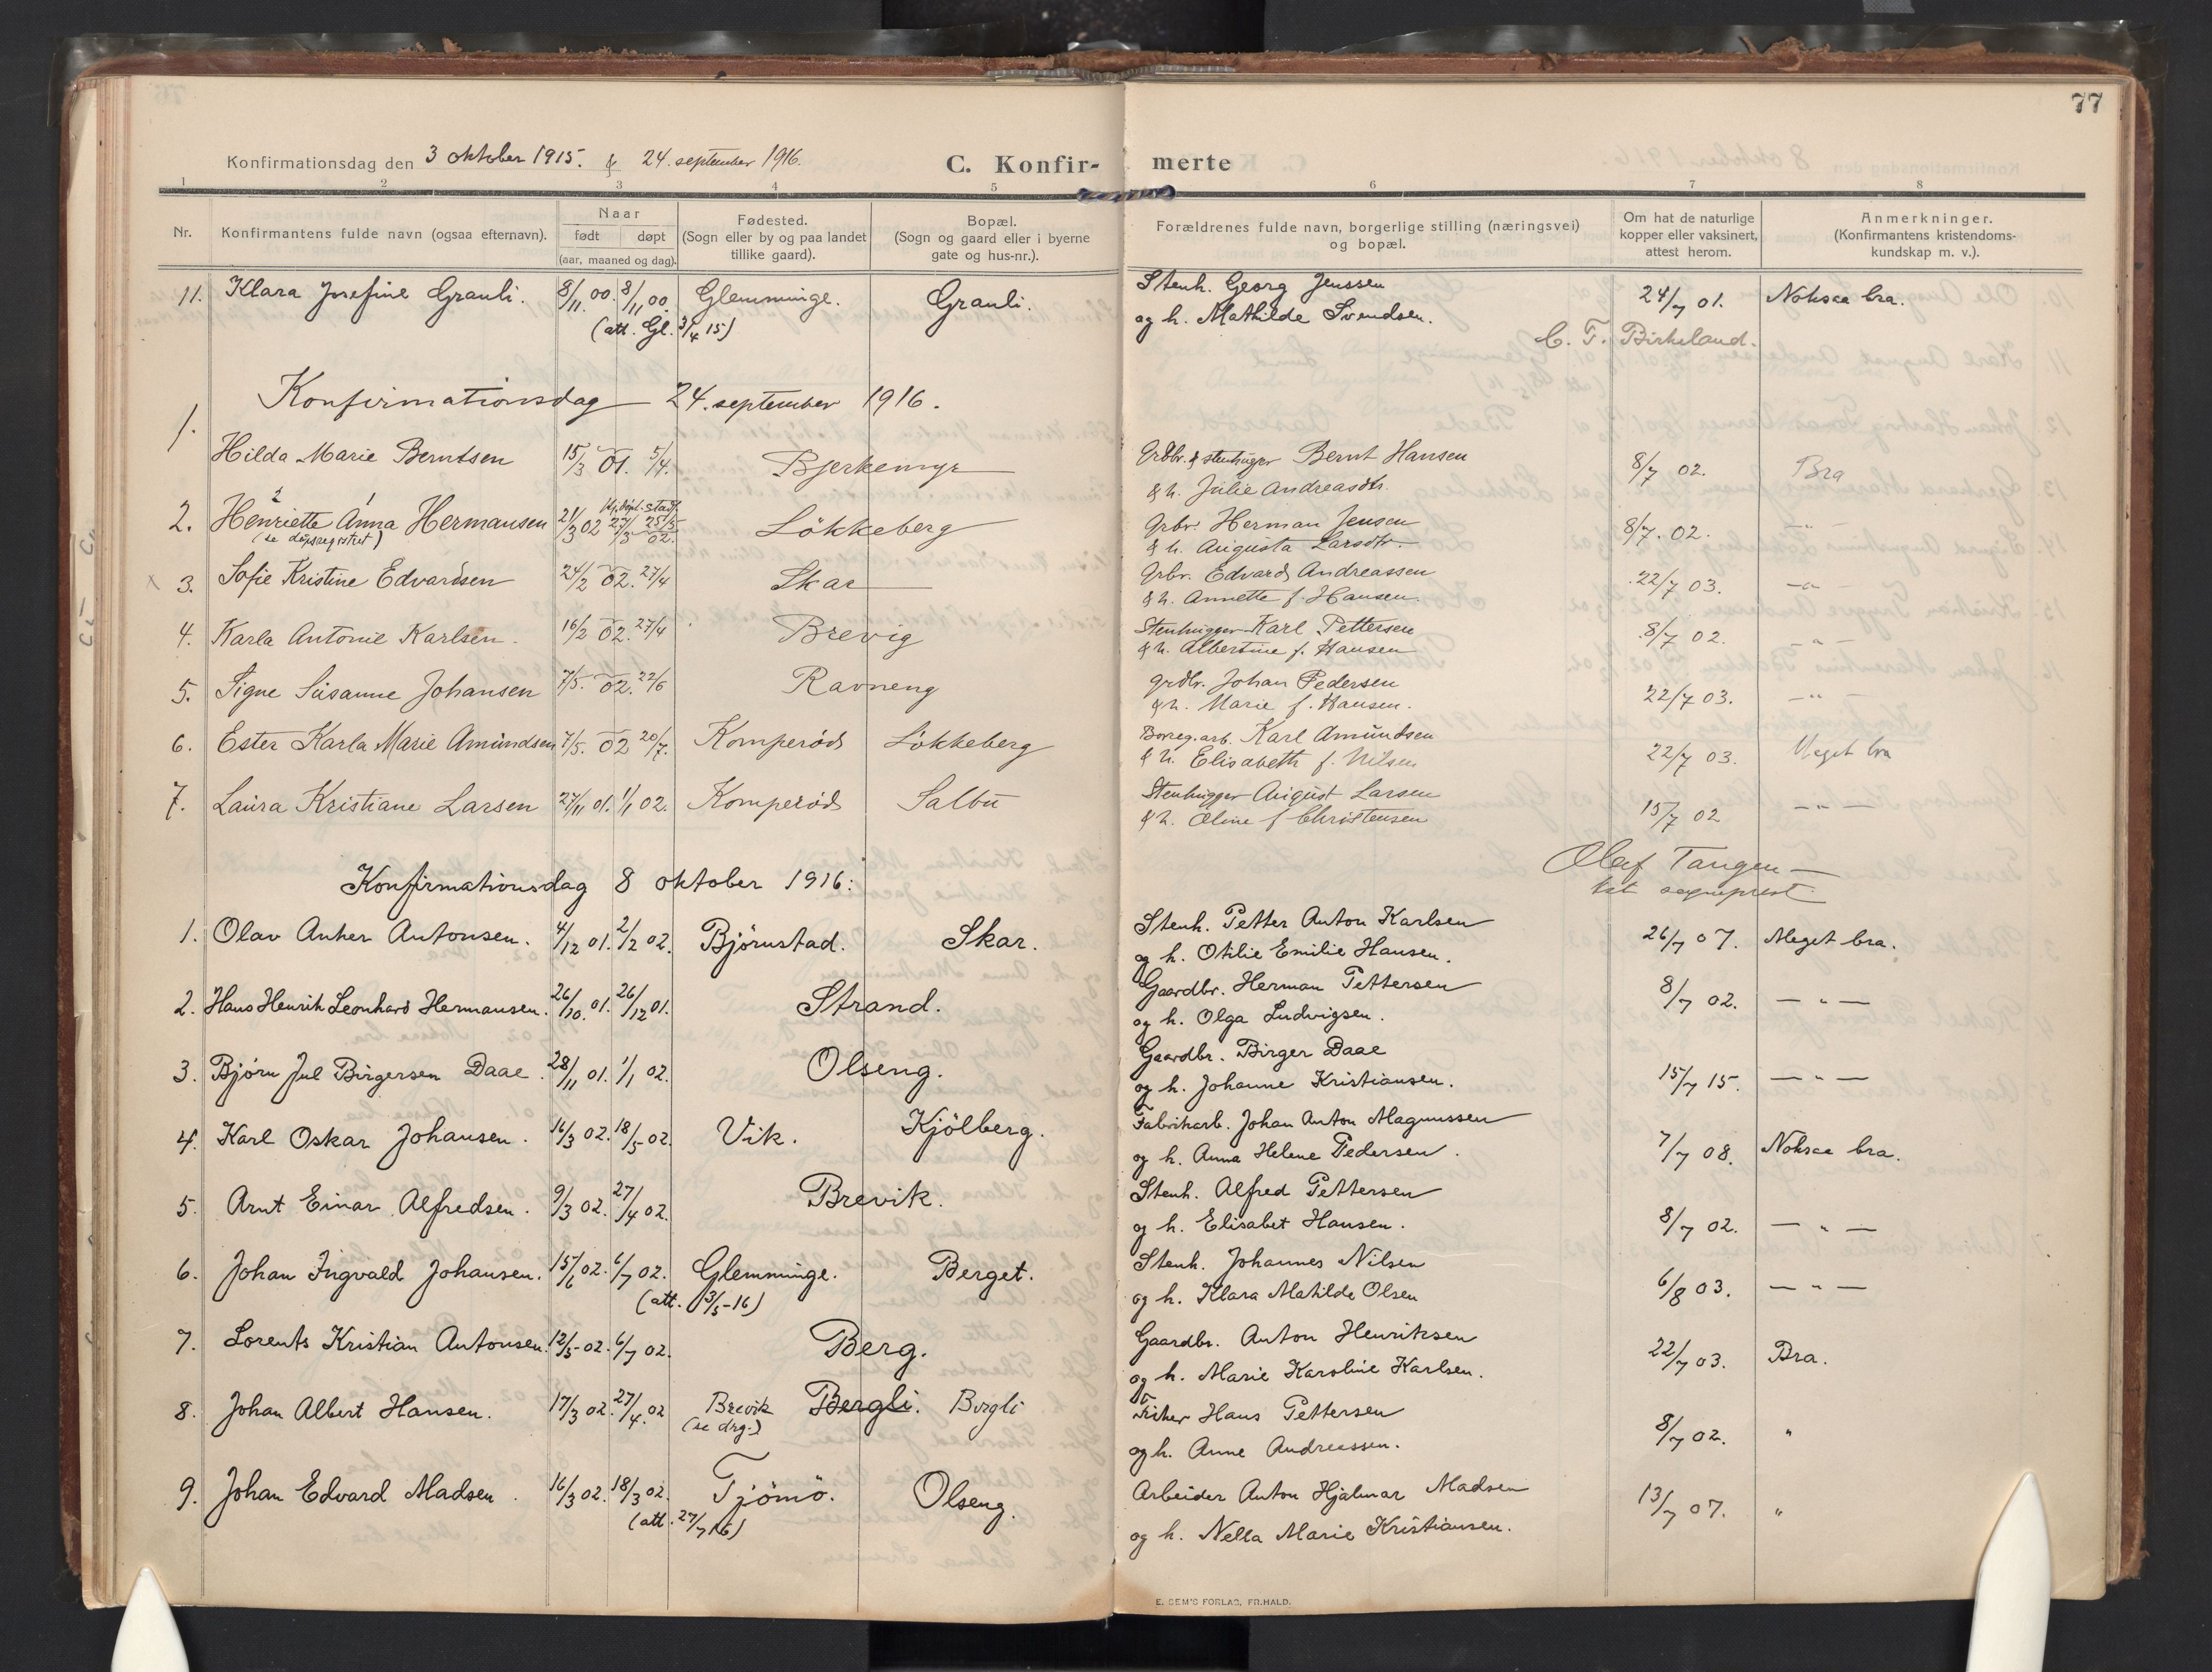 77
Konfirmationsdag den 3 oktober 1915. & 24. september 1916.
C. Konfir- merte
1 2 3 4 5 6 7 8
Nr.
Konfirmantens fulde navn (ogsaa efternavn).
Naar
født døpt
(aar, maaned og dag).
Fødested.
(Sogn eller by og paa landet
tillike gaard).
Bopæl.
(Sogn og gaard eller i byerne
gate og hus-nr.).
Forældrenes fulde navn, borgerlige stilling (næringsvei)
og bopæl.
Om hat de naturlige
kopper eller vaksinert,
attest herom.
Anmerkninger.
(Konfirmantens kristendoms-
kundskap m. v.).
11. Klara Josefine Grauli. 8/11 00. 8/11 00. Glemminge. Grauli. Stenh. Georg Jenssen 24/7 01. Noksaa bra.
(att. Gl. 3/4 15) og h. Mathilde Svendsen.
C. F. Birkeland.
Konfirmationsdag 24. september 1916.
1. Hilda Marie Berntsen 15/3 01. 5/4. Bjerkemyr Grdbr. & stenhugger Bernt Hansen 8/7 02. Bra
& h. Julie Andreasdtr.
2. Henriette Anna Hermansen 21/3 02 27/3 25/5 02. Lökkeberg Grbr. Herman Jensen 8/7. 02. -"-
(se dåpsregistret) & h. Augusta Larsdtr.
x 3. Sofie Kristine Edvardsen 24/2 02. 27/4 Skar Grbr. Edvard Andreassen 22/7 03. -"-
& h. Annette f. Hansen.
4. Karla Antonie Karlsen. 16/2 02. 27/4 Brevig Stenhugger Karl Pettersen 8/7 02. -"-
& h. Albertine f. Hansen
5. Signe Susanne Johansen 7/5. 02. 22/6 Ravneng grdbr. Johan Pedersen 22/7 03. -"-
& h. Marie f. Hansen.
6. Ester Karla Marie Amundsen 7/5. 02 20/7. Komperöd Lökkeberg Borreg. arb. Karl Amundsen 22/7 03. Meget bra
& h. Elisabeth f. Nilsen
7. Laura Kristiane Larsen 27/11 01. 1/1 02. Komperöd Salbu Stenhugger August Larsen 15/7 02 -"-
& h. Oline f Christensen
Olaf Tangen
kst sogneprest
Konfirmationsdag 8 oktober 1916:
1. Olav Anker Antonsen. 4/12 01. 2/2 02. Björnstad. Skar. Stenh. Petter Anton Karlsen 26/7 07. Meget bra.
og h. Otilie Emilie Hansen.
2. Hans Henrik Leonhard Hermansen. 26/10. 01. 26/12 01. Strand. Gaardbr. Herman Pettersen 8/7 02. -"-
og h. Olga Ludvigsen.
3. Bjørn Jul Birgersen Daae. 28/11 01. 1/1 02. Olseng. Gaardbr. Birger Daae 15/7 15. -"-
og h. Johanne Kristiansen.
4. Karl Oskar Johansen. 16/3 02. 18/5-02. Vik. Kjölberg. Fabrikarb. Johan Anton Magnussen 7/7 08. Noksaa bra.
og h. Anna Helene Pedersen.
5. Arnt Einar Alfredsen. 9/3 02. 27/4 02. Brevik. Stenh. Alfred Pettersen 8/7 02. -"-
og h. Elisabet Hansen.
6. Johan Ingvald Johansen. 15/6 02. 6/7 02. Glemminge. Berget. Stenh. Johannes Nilsen 6/8 03. -"-
(att. 3/5-16) og h. Klara Matilde Olsen
7. Lorents Kristian Antonsen. 12/5-02. 6/7 02. Berg. Gaardbr. Anton Henriksen 22/7 03. Bra.
og h. Marie Karoline Karlsen.
8. Johan Albert Hansen. 17/3 02. 27/4. 02 Brevik Bergli. Bergli Fisker Hans Pettersen 8/7 02. "
(se drg.) og h. Anne Andreassen.
9. Johan Edvard Madsen. 16/3 02. 18/3 02. Tjömö. Olseng. Arbeider Anton Hjalmar Madsen 13/7 07. "
(att. 27/7 16) og h. Nella Marie Kristiansen.
E. SEM'S FORLAG, FR.HALD.